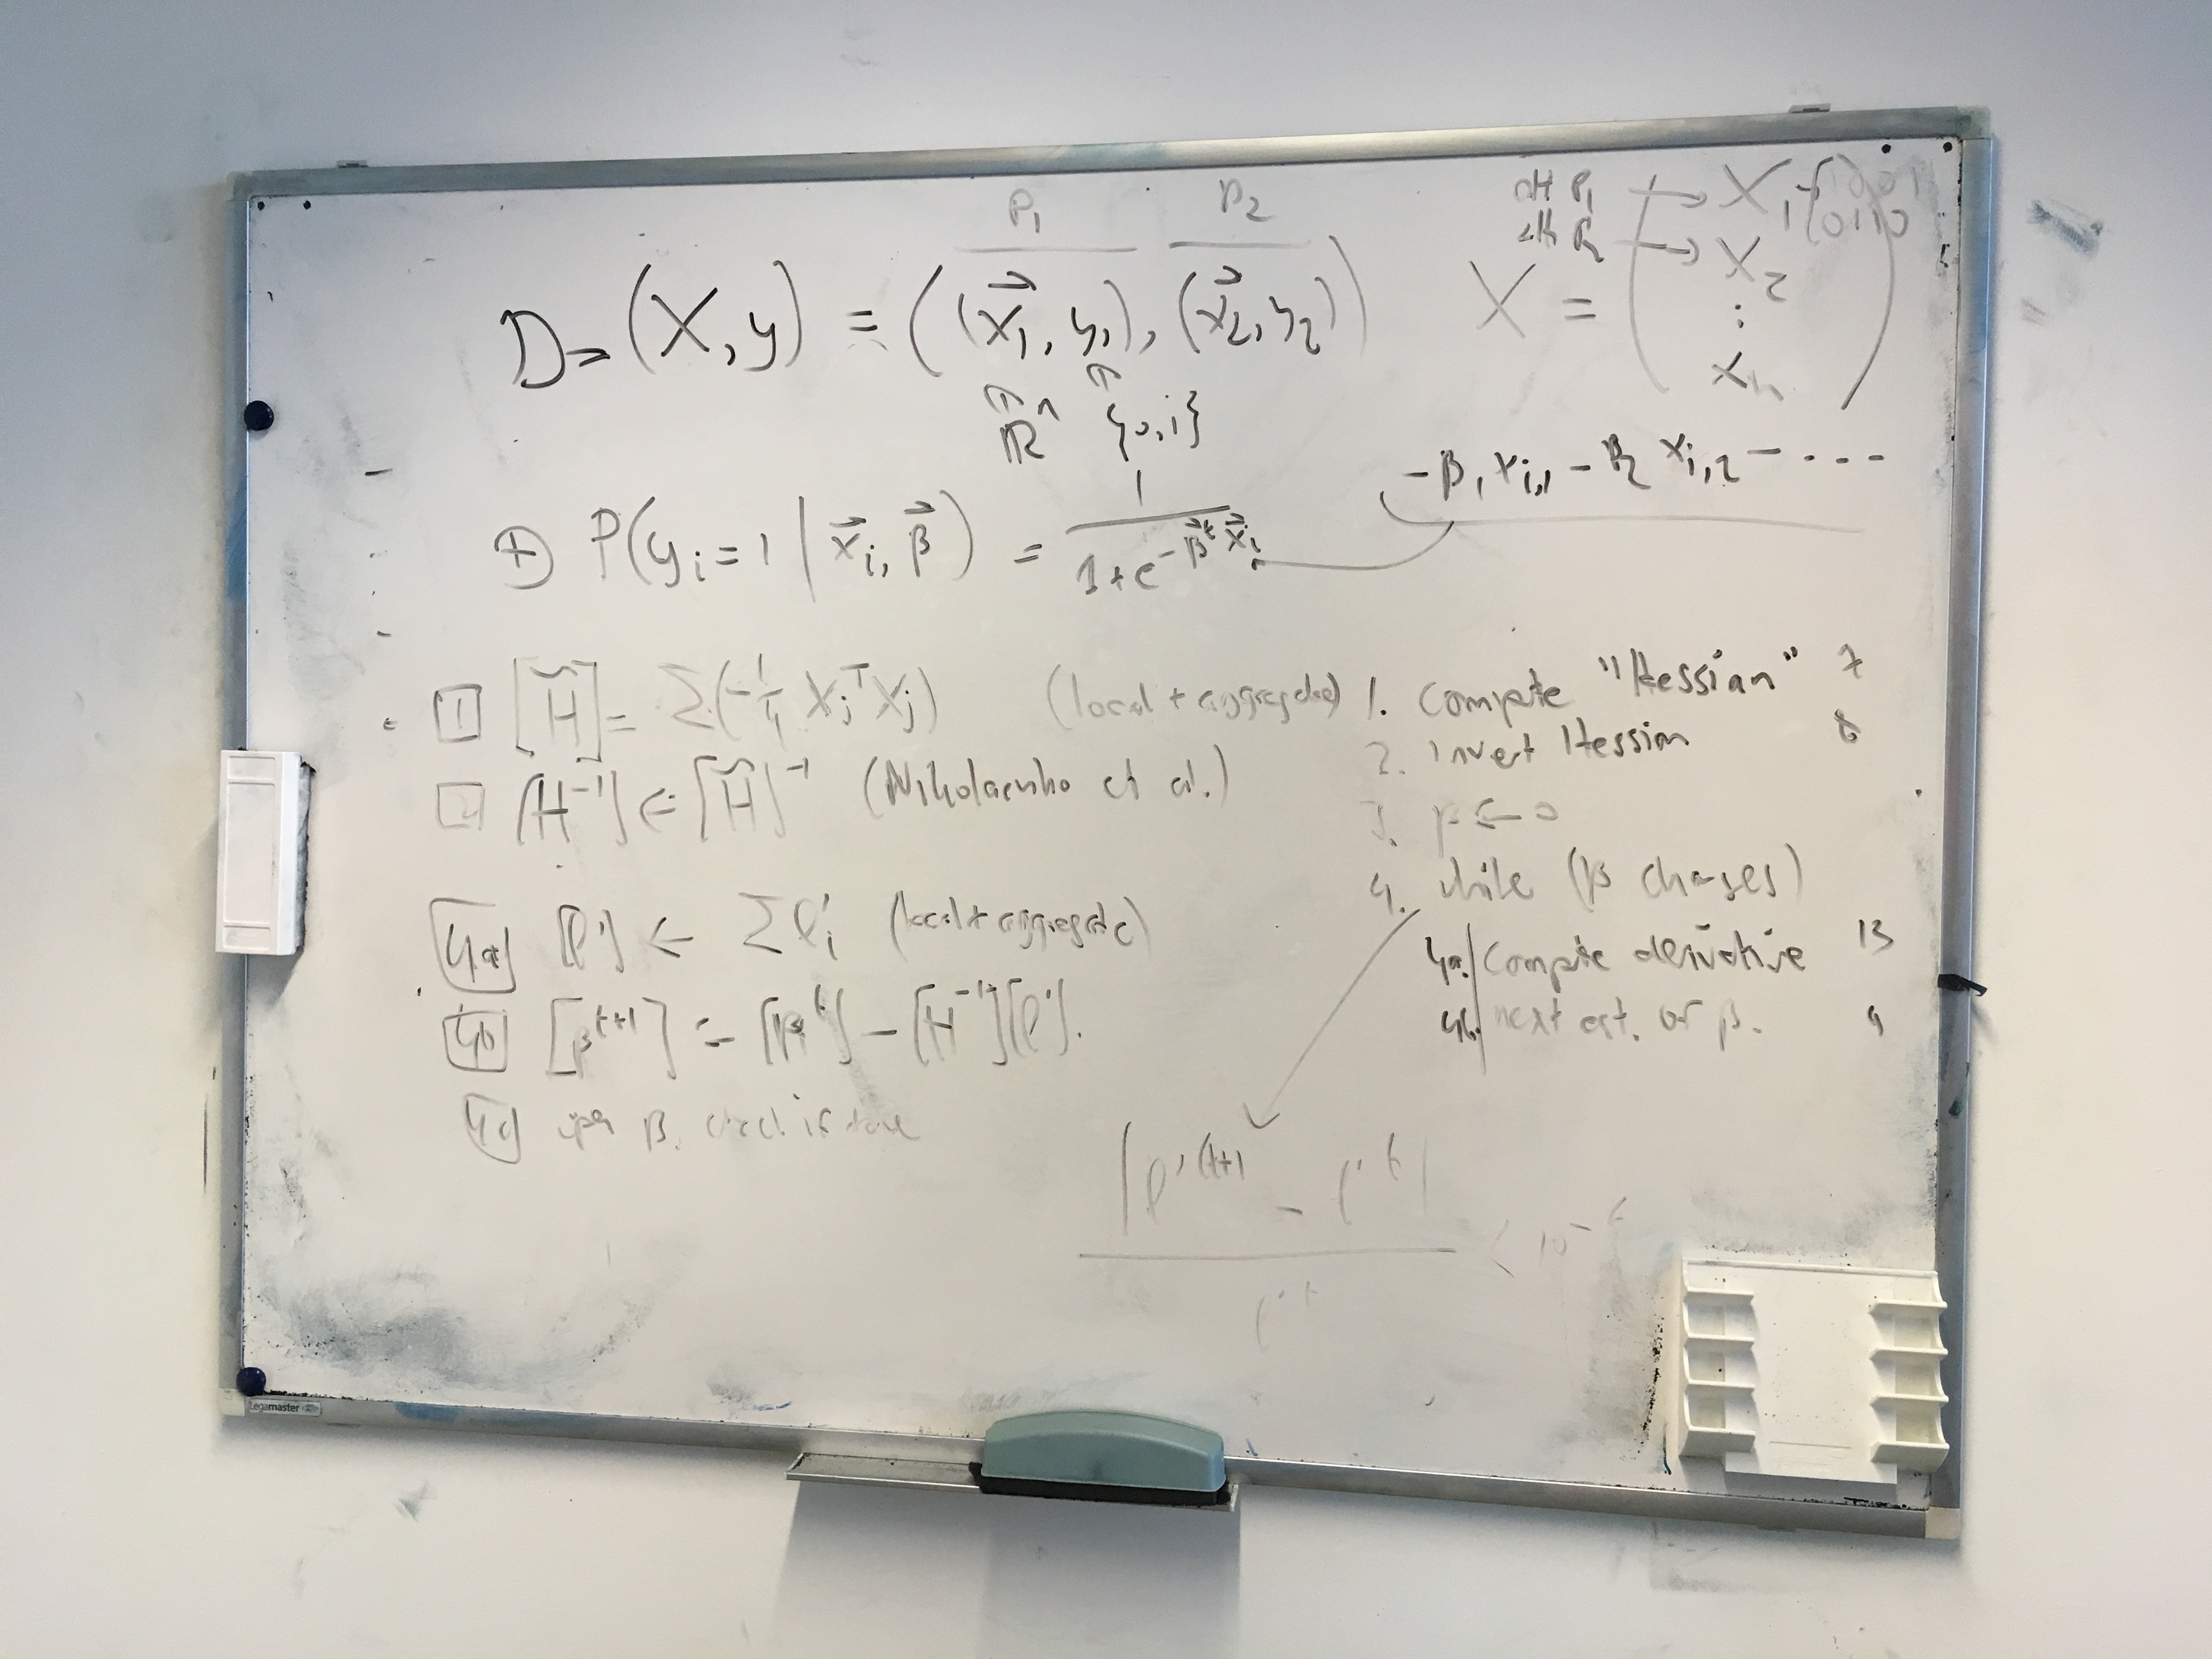 P₁ P₂
D = (X, y) = ((x⃗₁, y₁), (x⃗₂, y₂))
ℝⁿ {0,1}
P₁ → X₁ (1001
P₂ → X₂ 0110
X = ( ⋮
Xₙ )
-β₁ xᵢ,₁ - β₂ xᵢ,₂ - ....
① P(yᵢ = 1 | x⃗ᵢ, β⃗) = 1 / (1 + e^(-β⃗ᵗ x⃗ᵢ))
1 [H̃] = Σ(-1/4 Xⱼᵀ Xⱼ) (local + aggregate)
2 [H⁻¹] ⇐ [H̃]⁻¹ ( et al.)
4a [ℓ'] ← Σ ℓ'ᵢ (local + aggregate)
4b [βᵗ⁺¹] = [βᵗ] - [H⁻¹][ℓ'].
4c open β. check if done
1. Compute "Hessian" 7
2. invert Hessian 8
3. β ← 0
4. while (β changes)
4a. Compute derivative 13
4b. next est. of β. 9
|ℓ'⁽ᵗ⁺¹ - ℓ'ᵗ| / ℓ'ᵗ < 10⁻⁶
Legamaster